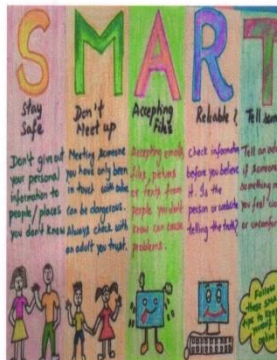 SMART
Stay
Safe
Don't give out
your personal
information to
people/places
you don't know
Don't
Meet up
Meeting someone
you have only been
in touch with online
can be dangerous.
Always check with
an adult you trust.
Accepting
Files
Accepting emails,
files, pictures
or texts from
people you don't
know can cause
problems.
Reliable?
Check information
before you believe
it. Is the
person or website
telling the truth?
Tell
Tell an
if someone
something
you feel
or
Follow
these
tips to